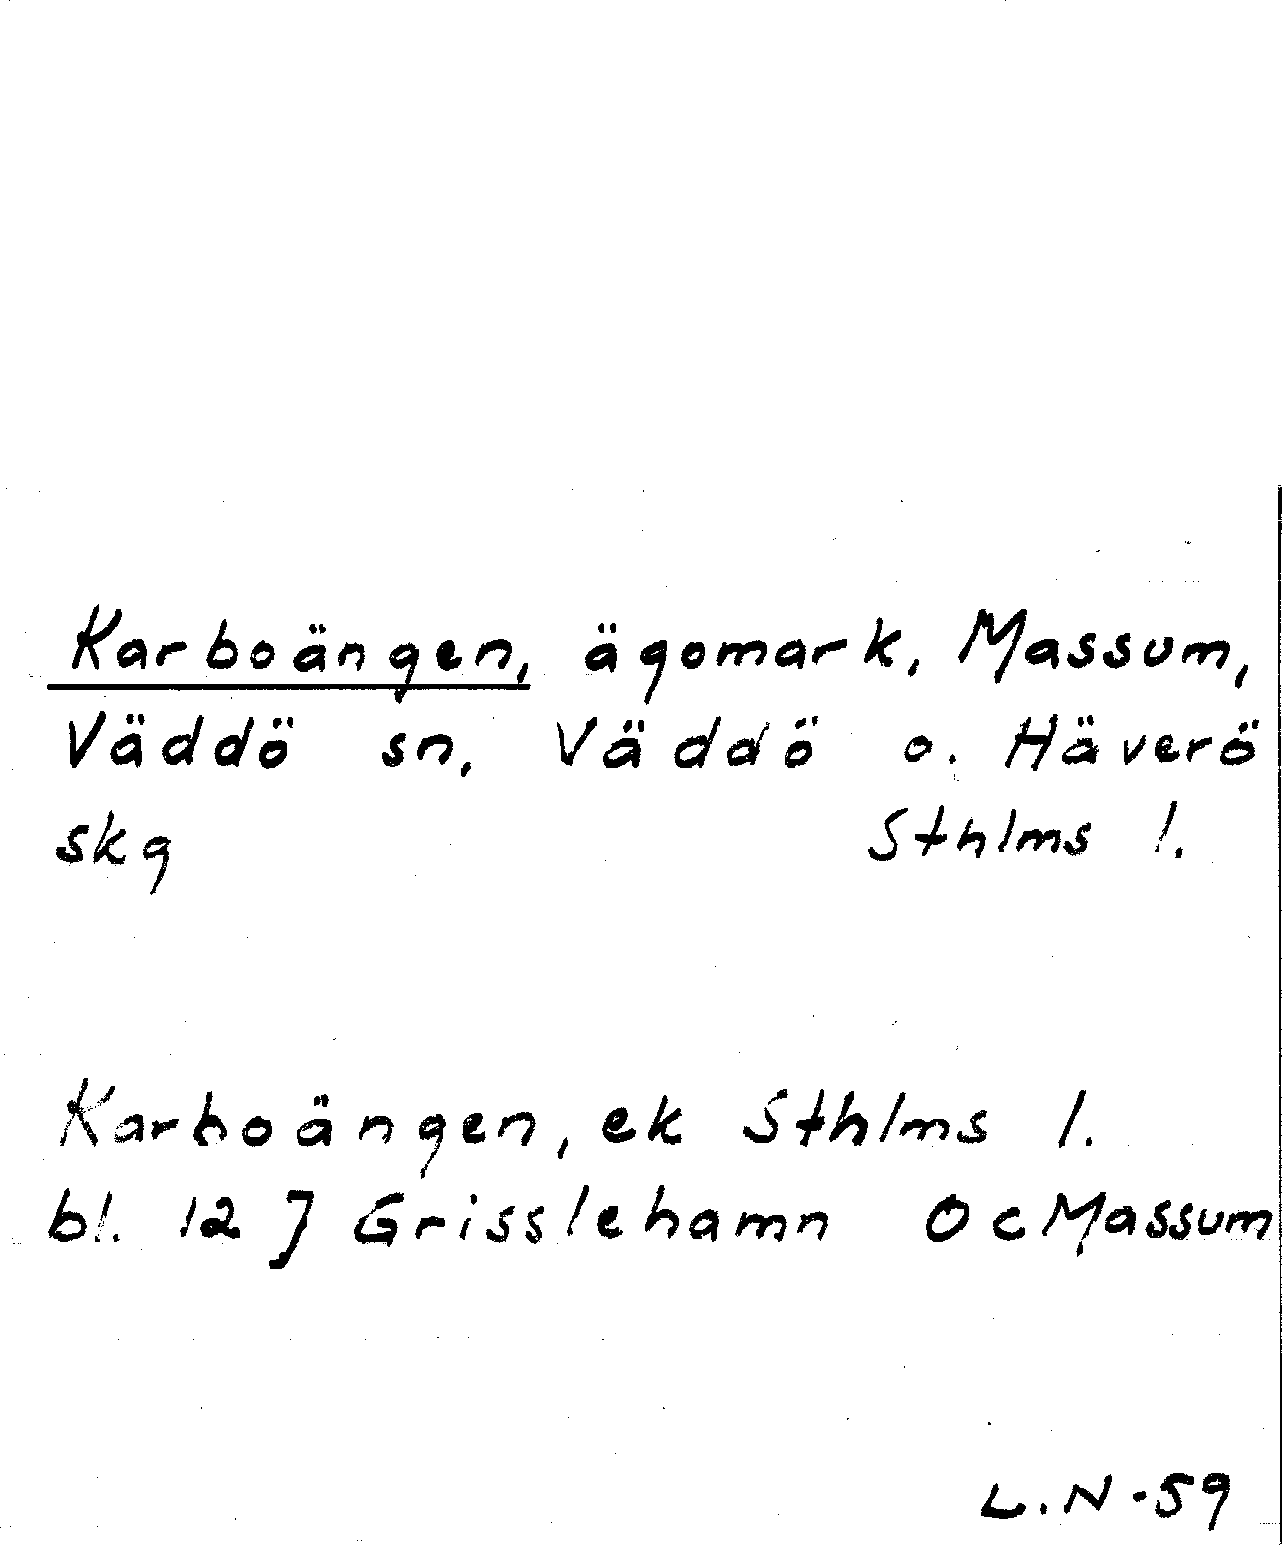 Karboängen, ägomark, Massum,
Väddö sn, Väddö o. Häverö
skg Sthlms l.
Karboängen, ek Sthlms l.
bl. 12 J Grisslehamn Oc Massum
L.N-59